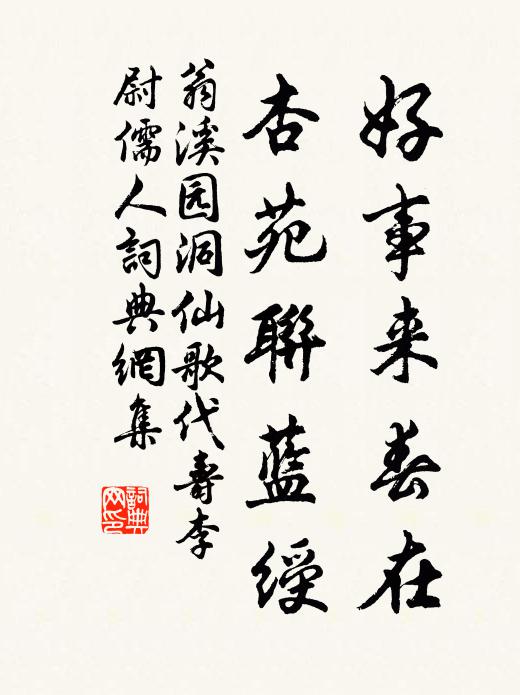 好事来春在
杏苑聯藍綬
翁溪园洞仙歌代壽李
尉儒人詞典網集
詞典
网印